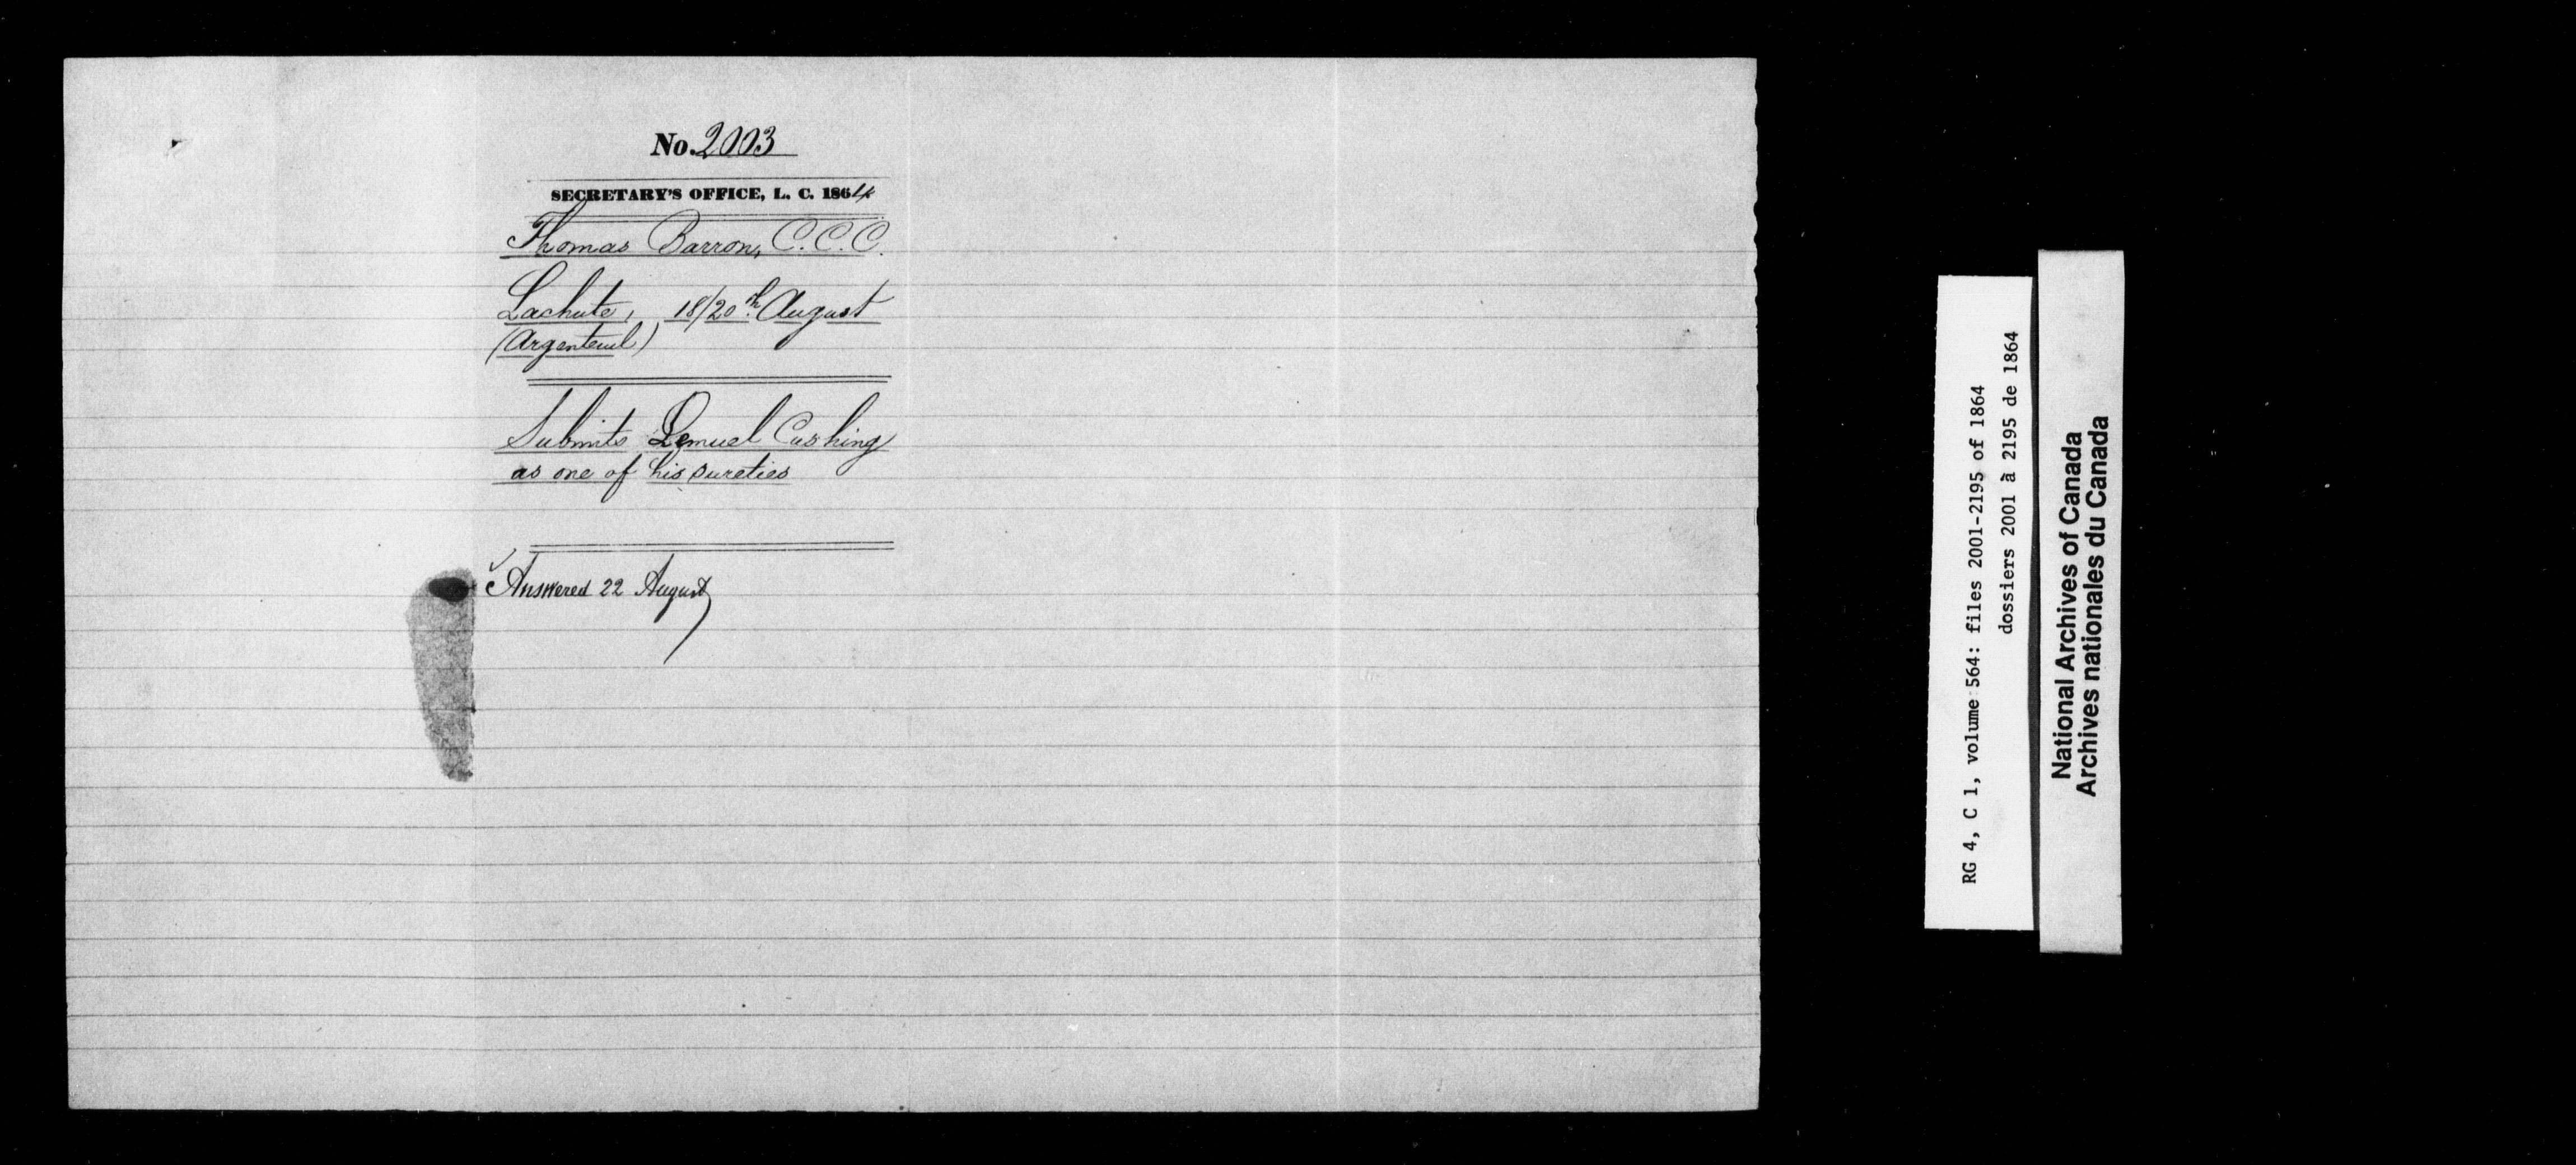 No. 2003
SECRETARY'S OFFICE, L. C. 1864
Thomas Barron, C.C.C.
Lachute, 18/20th August
(Argenteuil)
Submits Lemuel Cushing
as one of his sureties
Answered 22 August
RG 4, C 1, volume 564: files 2001-2195 of 1864
dossiers 2001 à 2195 de 1864
National Archives of Canada
Archives nationales du Canada